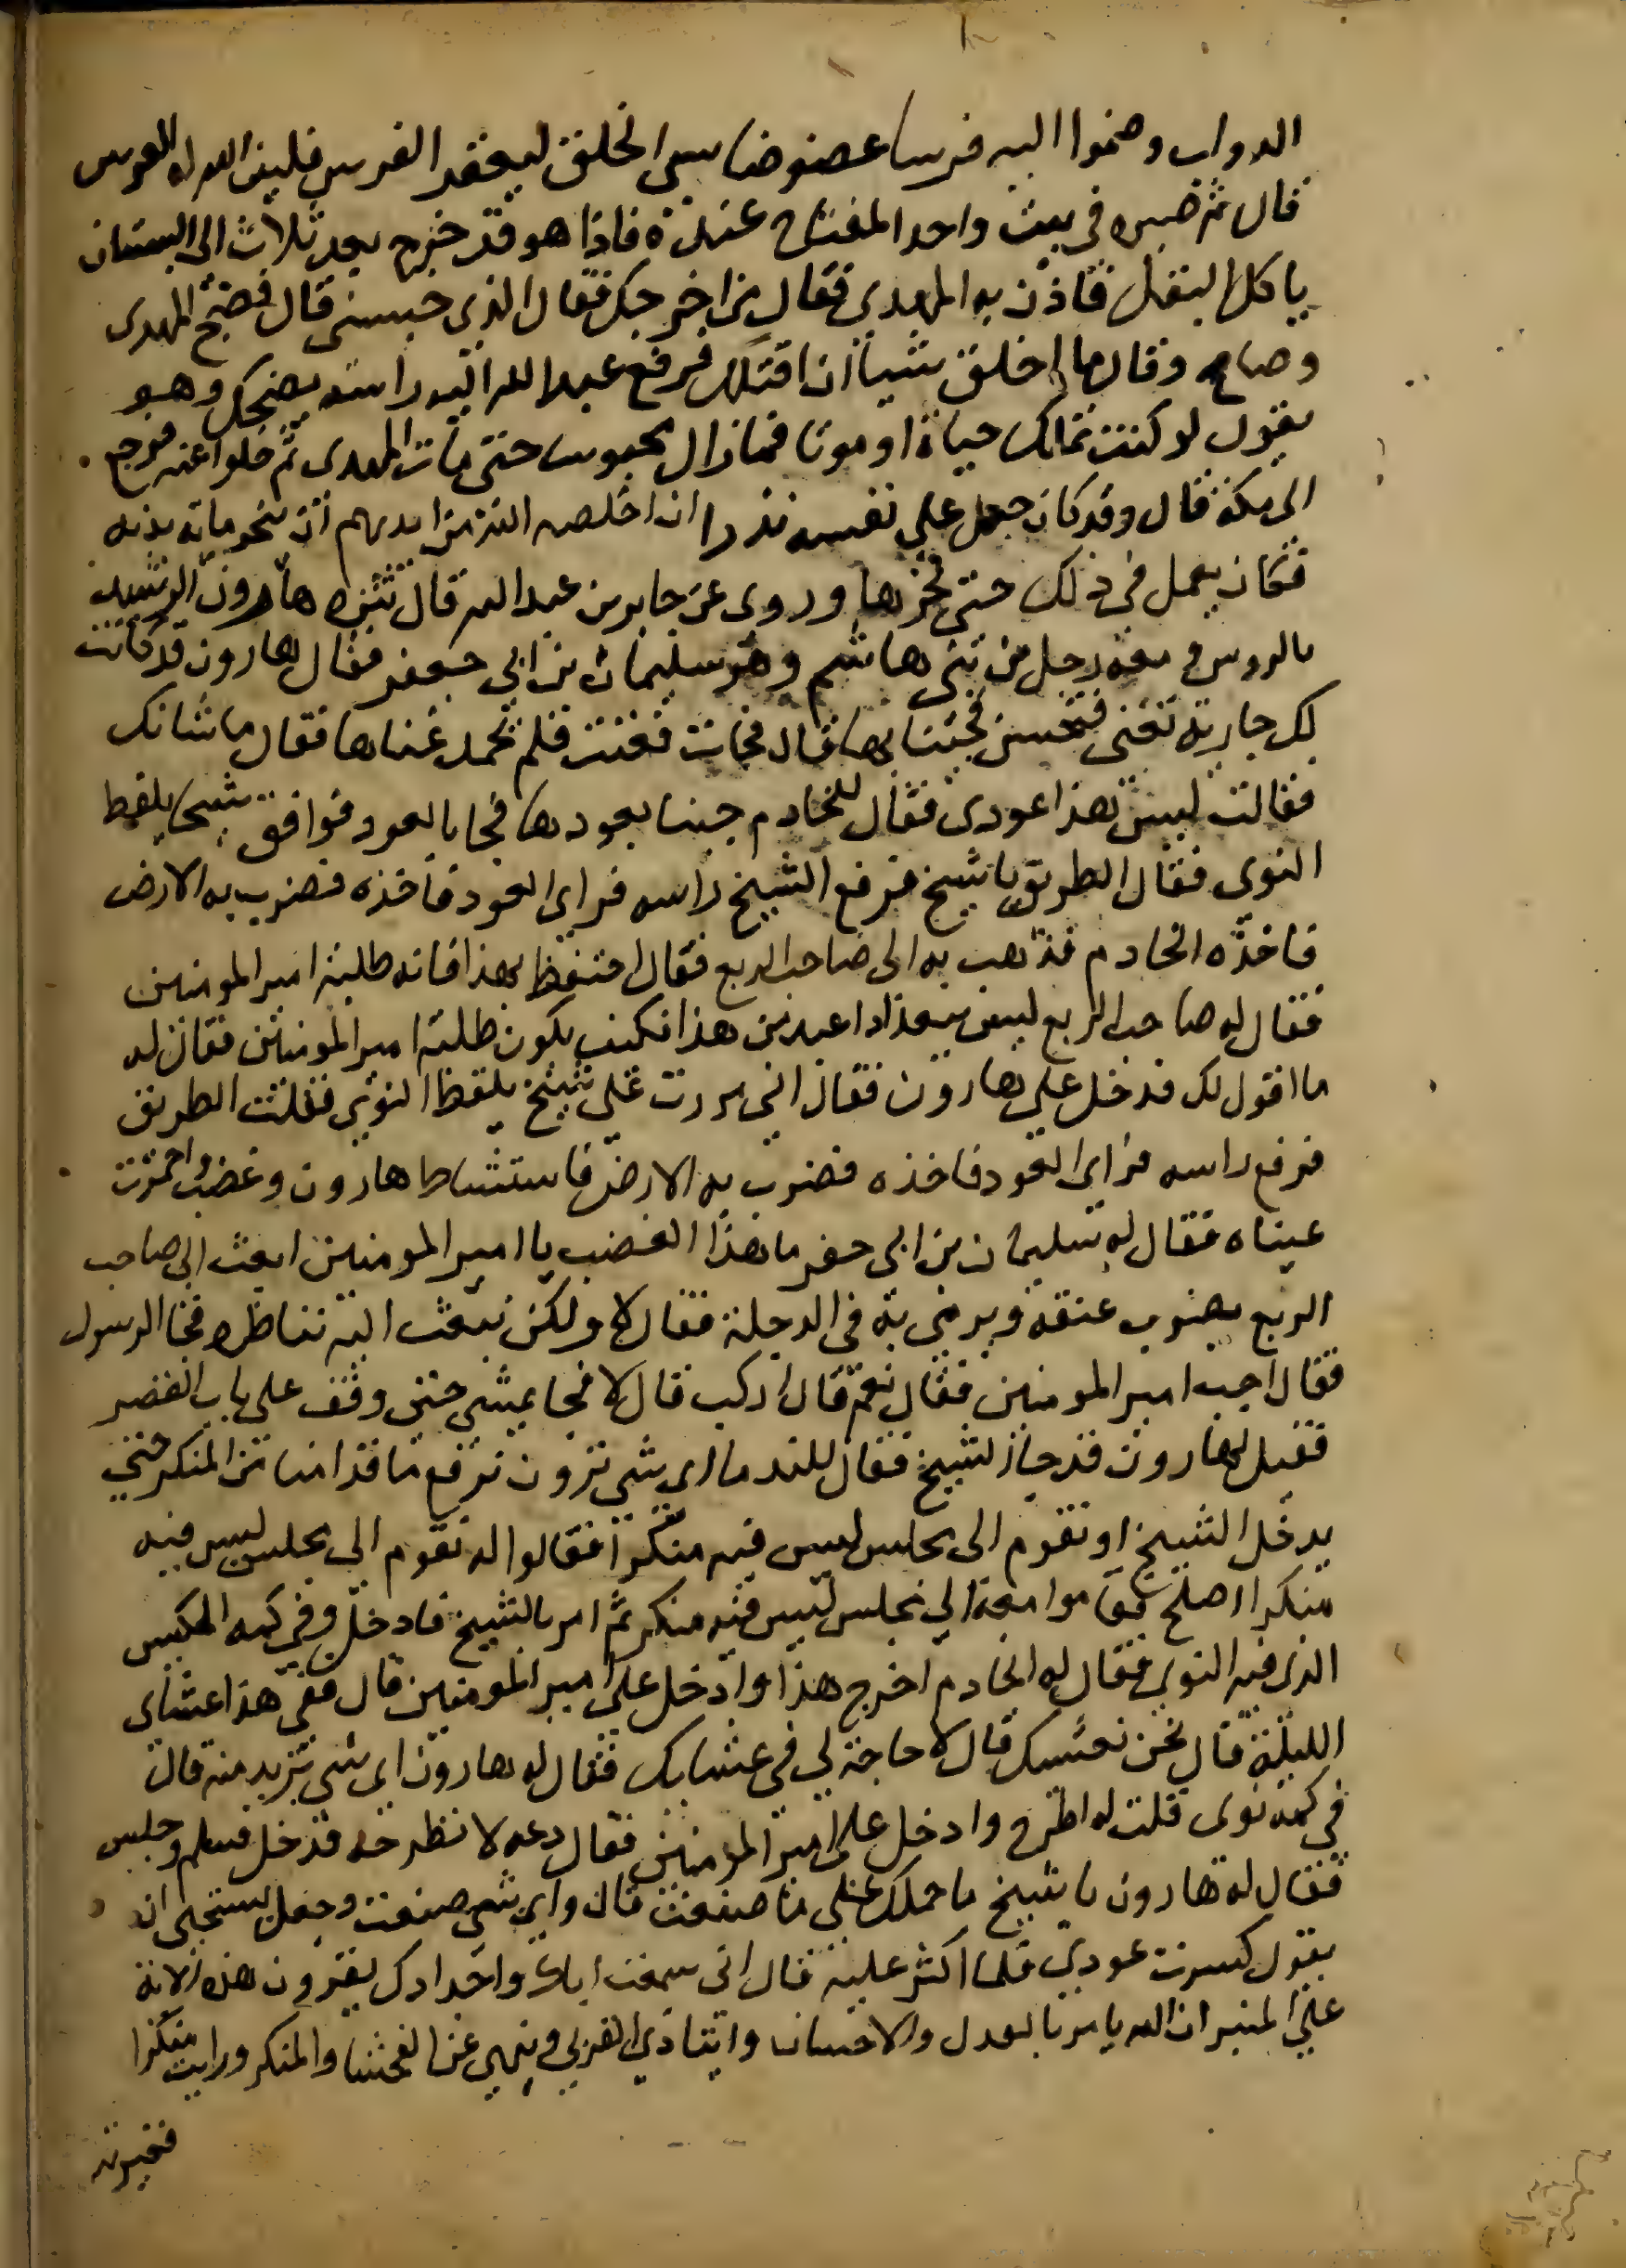 الدواب وضموا اليه فرسا عضوضا سىء الخلق ليعقر الفرس فلين الله له الفرس
قال ثم صيره في بيت واحد المفتاح عنده فاذا هو قد خرج بعد ثلاث الى البستان
ياكل البقل فاذن به المهدي فقال من اخرجك فقال الذي حبسني قال فضج المهدي
وصاح وقال ما اخاف شيا ان اقتلك فرفع عبد الله اليه راسه يضحك وهو
يقول لو كنت تملك حياة او موتا فما زال محبوسا حتى مات المهدي ثم خلوا عنه فرجع
الى مكة قال وقد كان جعل على نفسه نذرا ان خلصه الله من ايديهم ان ينحر مايه بدنه
فكان يعمل في ذلك حتى نحرها وروى عن جابر بن عبد الله قال تنزه هارون الرشيد
بالدوس ومعه رجل من بني هاشم وهو سليمان بن ابي جعفر فقال هارون قد كانت
لك جارية تغنى فتحسن فجئنا بها قال فجات فغنت فلم يحمد غناها فقال ما شانك
فقالت ليس هذا عودى فقال للخادم جينا بعودها فجا بالعود فوافق شيخا يلقط
النوى فقال الطريق يا شيخ فرفع الشيخ راسه فراى العود فاخذه فضرب به الارض
فاخذه الخادم فذهب به الى صاحب الربع فقال احتفظ بهذا فانه طلبة امير المومنين
فقال له صاحب الربع ليس ببغداد اعبد من هذا فكيف يكون طلبة امير المومنين فقال له
ما اقول لك فدخل على هارون فقال اني مررت على شيخ يلقط النوى فقلت الطريق
فرفع راسه فراى العود فاخذه فضرب به الارض فاستشاط هارون وغضب واحمرت
عيناه فقال له سليمان بن ابى جعفر ما هذا الغضب يا امير المومنين ابعث الى صاحب
الربع يضرب عنقه ويرمى به في الدجلة فقال لا ولكن نبعث اليه نناظره فجا الرسول
فقال اجب امير المومنين فقال نعم قال اركب قال لا فجا يمشى حتى وقف على باب القصر
فقيل لهارون قد جا الشيخ فقال للندما اى شى ترون نرفع ما قدامنا من المنكر حتى
يدخل الشيخ او نقوم الى مجلس ليس فيه منكرا فقالوا له نقوم الى مجلس ليس فيه
منكرا اصلح فقاموا معه الى مجلس ليس فيه منكر ثم امر بالشيخ فادخل وفي كمه الكيس
الذى فيه النوى فقال له الخادم اخرج هذا وادخل على امير المومنين قال ففى هذا عشاى
الليلة قال نحن نعشيك قال لا حاجة لى في عشايك فقال له هارون اى شى تريد منه قال
في كمه نوى قلت له اطرح وادخل على امير المومنين فقال دعه لا نطرحه فدخل فسلم وجلس
فقال له هارون يا شيخ ما حملك على ما صنعت قال واى شى صنعت وجعل يستحى ان
يقول كسرت عودى فلما اكثر عليه قال انى سمعت اباك واجدادك يقرون هذه الاية
على المنبر ان الله يامر بالعدل والاحسان وايتا ذي القربى وينهى عن الفحشا والمنكر ورايت منكرا
فغيرته